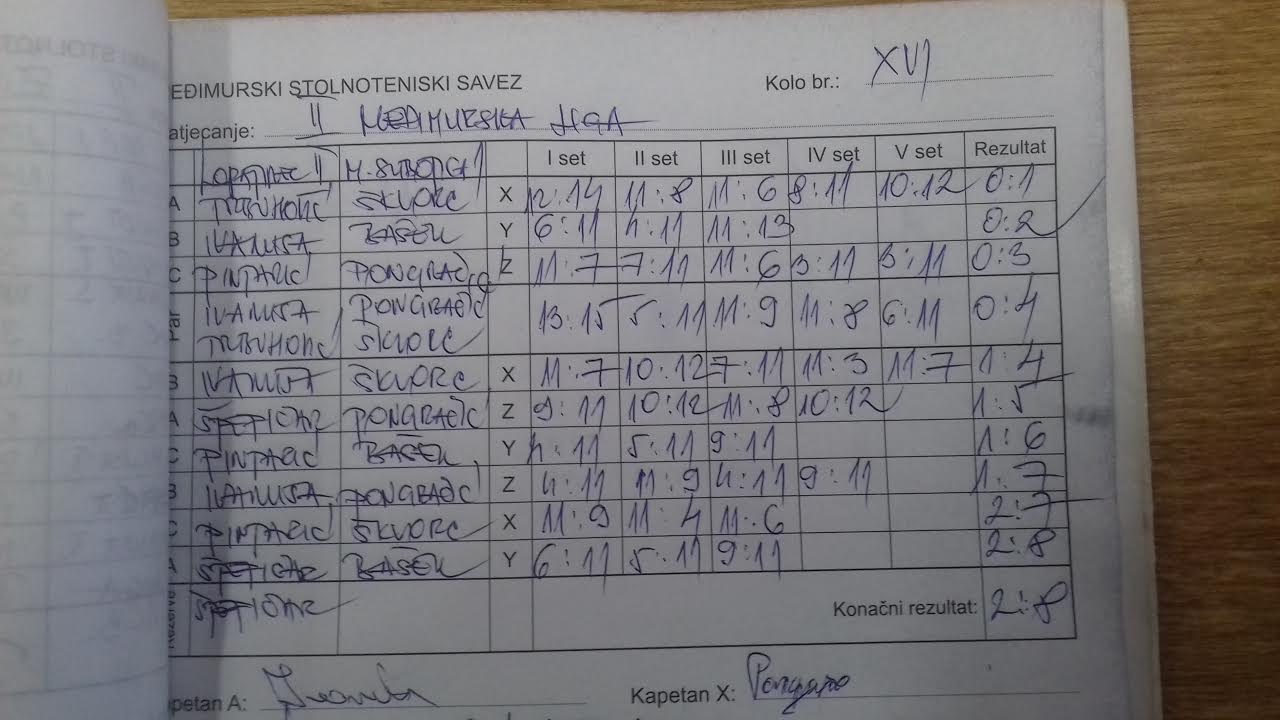 EĐIMURSKI STOLNOTENISKI SAVEZ Kolo br.: XVI
atjecanje: II MEĐIMURSKA LIGA
LOPATINEC II M. SUBOTICA I I set II set III set IV set V set Rezultat
A TRBUHOVIĆ ŠKVORC X 12:14 11:8 11:6 8:11 10:12 0:1
B IVANUŠA BAŠEK Y 6:11 4:11 11:13 0:2
C PINTARIĆ PONGRAČIĆ Z 11:7 7:11 11:6 3:11 3:11 0:3
Par IVANUŠA PONGRAČIĆ 13:15 5:11 11:9 11:8 6:11 0:4
TRBUHOVIĆ ŠKVORC
B IVANUŠA ŠKVORC X 11:7 10:12 7:11 11:3 11:7 1:4
A PONGRAČIĆ Z 9:11 10:12 11:8 10:12 1:5
C PINTARIĆ BAŠEK Y 4:11 5:11 9:11 1:6
B IVANUŠA PONGRAČIĆ Z 4:11 11:9 4:11 9:11 1:7
C PINTARIĆ ŠKVORC X 11:9 11:4 11:6 2:7
A BAŠEK Y 6:11 5:11 9:11 2:8
Konačni rezultat: 2:8
petan A: Kapetan X: